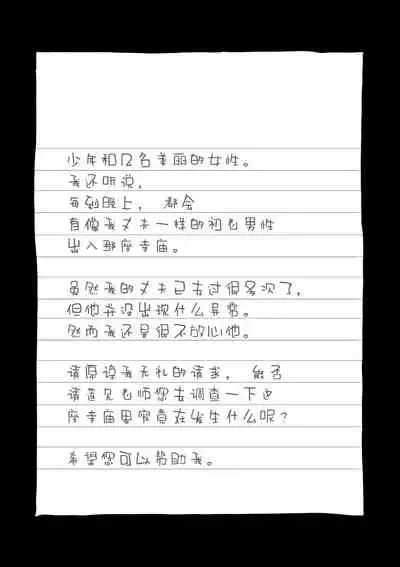 少年和几名美丽的女性。
我还听说，
每到晚上， 都会
有像我丈夫一样的初老男性
出入那座寺庙。
虽然我的丈夫已去过很多次了，
但他并没出现什么异常。
然而我还是很不放心他。
请原谅我无礼的请求， 能否
请首见老师您去调查一下这
座寺庙里究竟在发生什么呢？
希望您可以帮助我。